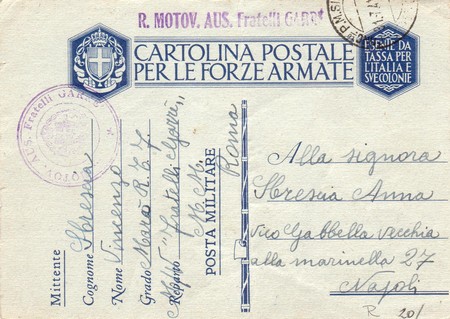 R. MOTOV. AUS. Fratelli GARRÈ
CARTOLINA POSTALE
PER LE FORZE ARMATE
ESENTE DA
TASSA PER
L'ITALIA E
SVE COLONIE
MOTOV. AUS. Fratelli GARRÈ
Mittente
Cognome Sbrescia
Nome Vincenzo
Grado Marò R.E.T.
Reparto "Fratelli Garrè"
POSTA MILITARE
Roma
Alla signora
Sbrescia Anna
vico Gabbella vecchia
alla marinella 27
Napoli
R 201